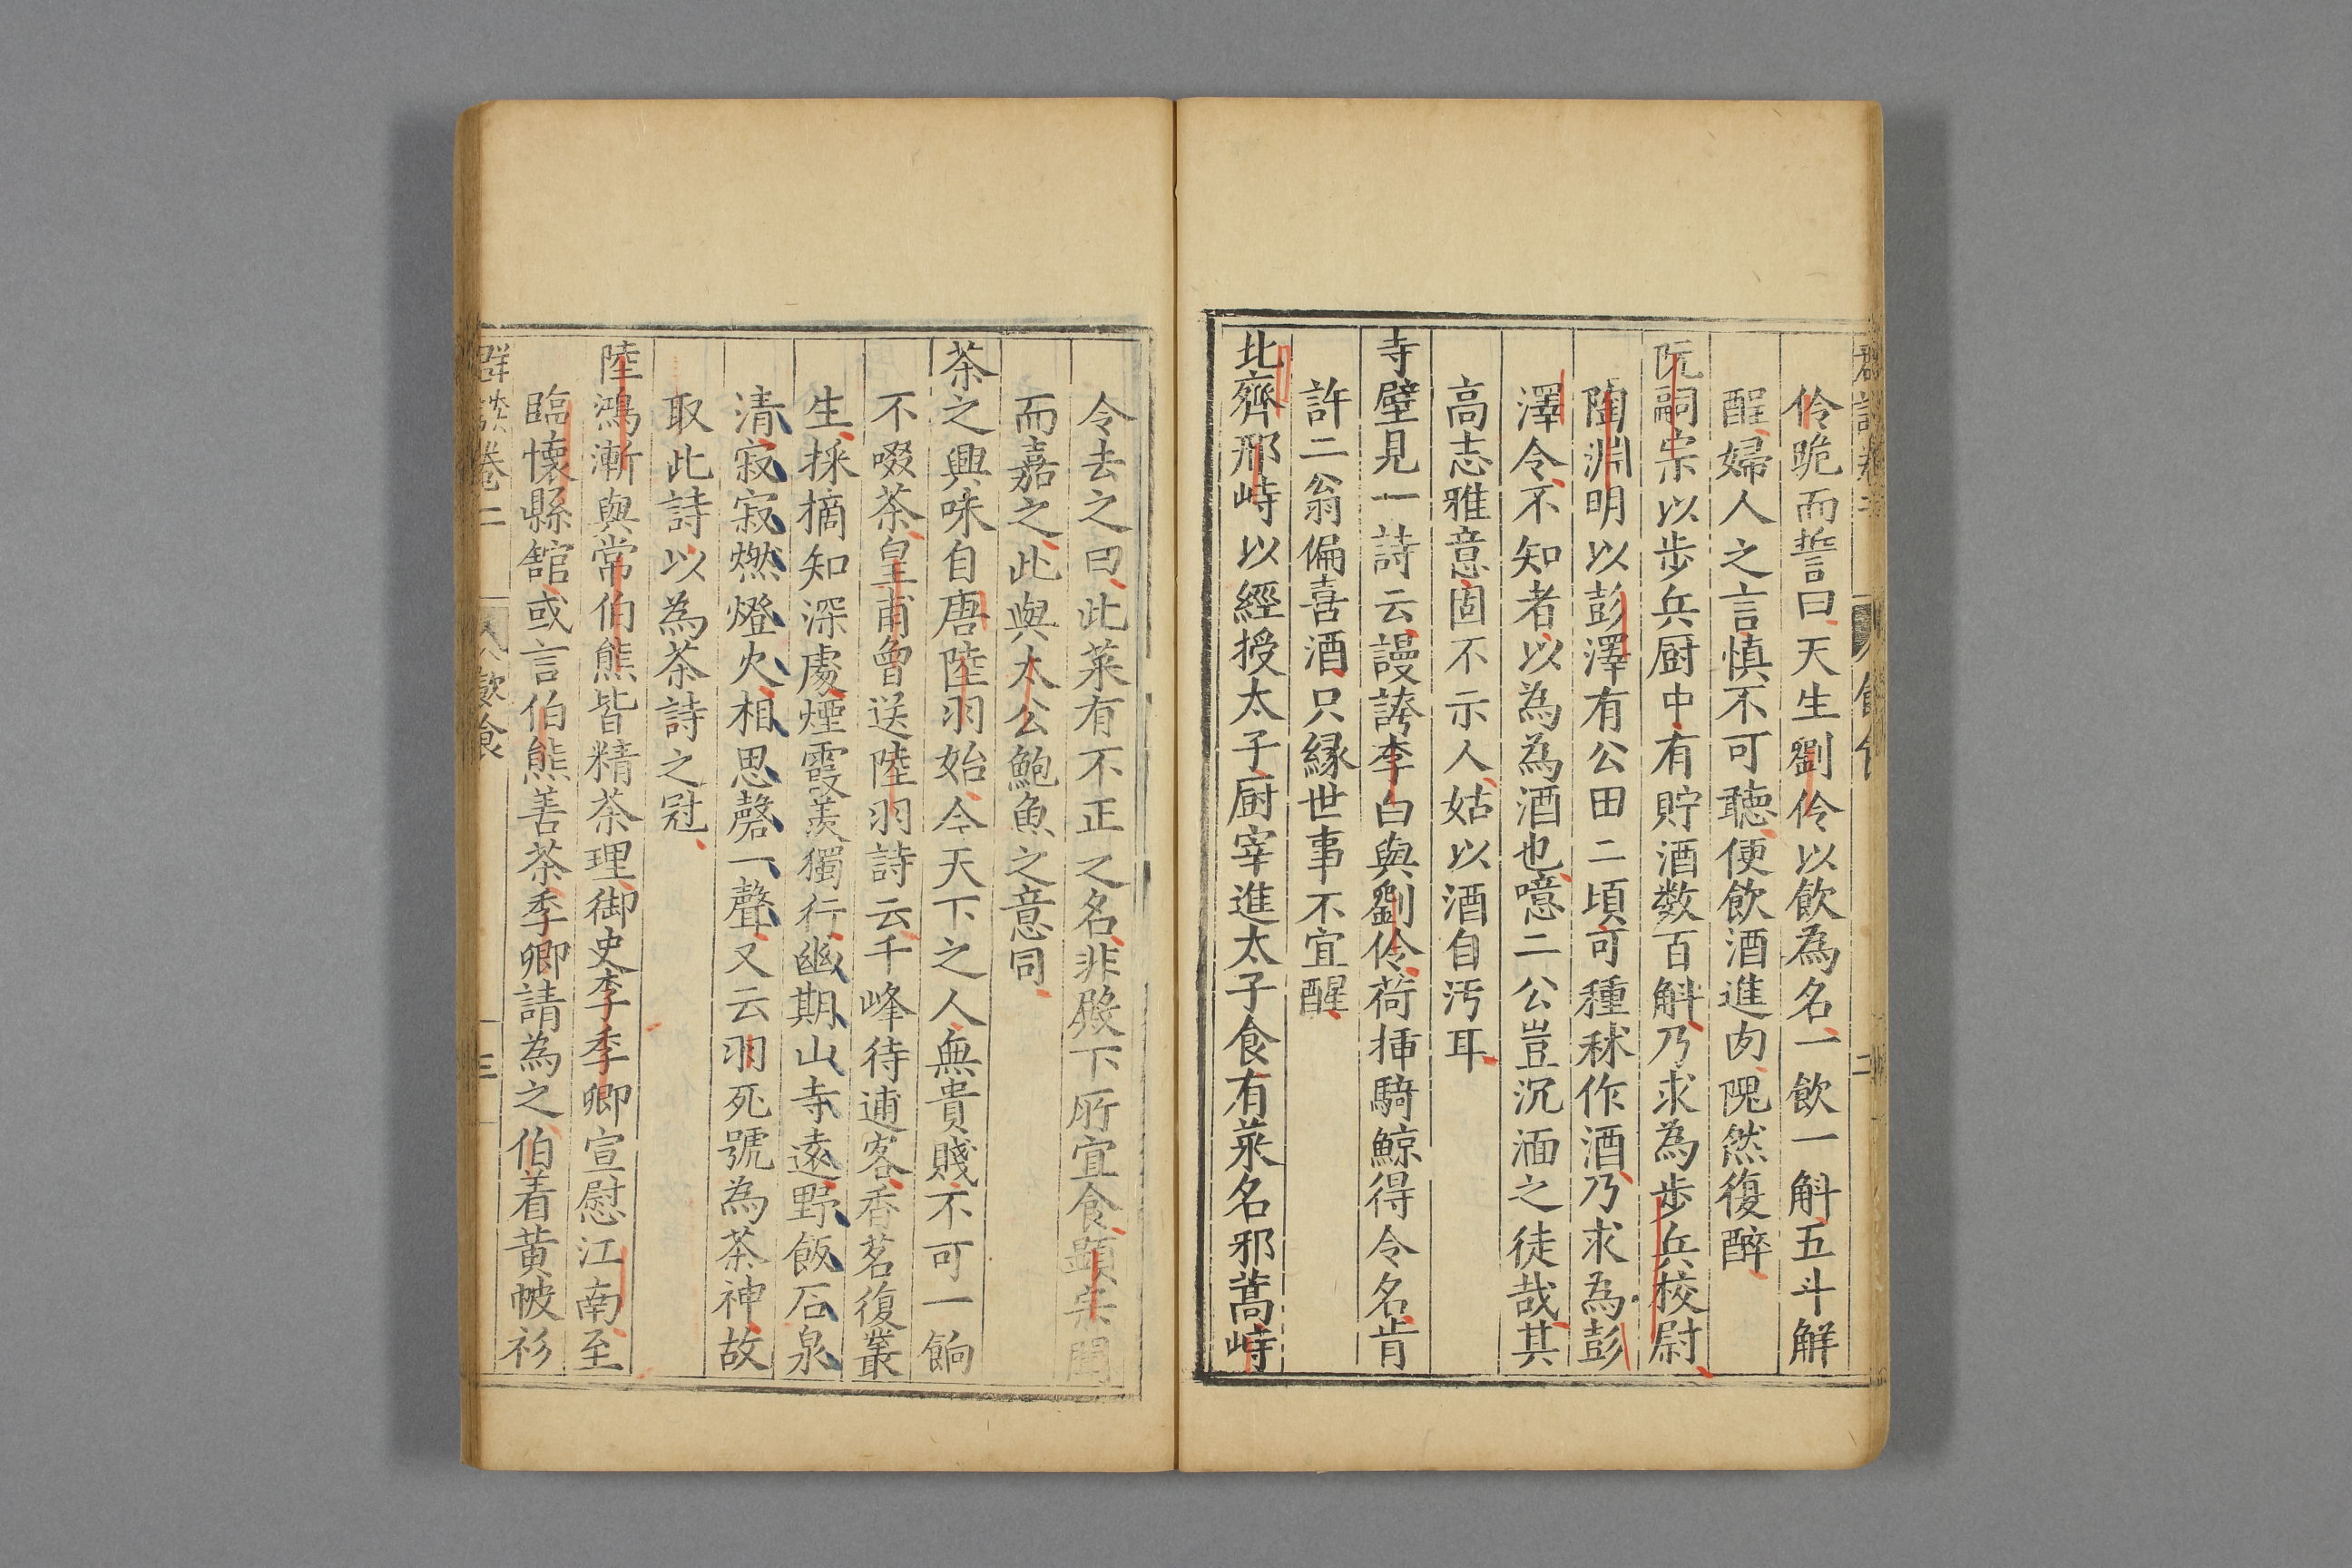 伶跪而誓曰天生劉伶以飲為名一飲一斛五斗觧
酲婦人之言慎不可聴便飲酒進肉隗然復醉
阮嗣宗以歩兵厨中有貯酒数百斛乃求為歩兵校尉
陶淵明以彭澤有公田二頃可種秫作酒乃求為彭
澤令不知者以為為酒也噫二公豈沉湎之徒哉其
高志雅意固不示人姑以酒自汚耳
寺壁見一詩云謾誇李白與劉伶荷挿騎鯨得令名肯
許二翁偏喜酒只縁世事不宜醒
北齊邢峙以經授太子厨宰進太子食有菜名邪蒿峙
令去之曰此菜有不正之名非殿下所宜食顕宗聞
而嘉之此與太公鮑魚之意同
茶之興味自唐陸羽始今天下之人無貴賤不可一餉
不啜茶皇甫曾送陸羽詩云千峰待逋客香茗復叢
生採摘知深處煙霞羨獨行幽期山寺遠野飯石泉
清寂寂燃燈火相思磬一聲又云羽死號為茶神故
取此詩以為茶詩之冠
陸鴻漸與常伯熊皆精茶理御史李季卿宣慰江南至
臨懷縣舘或言伯熊善茶季卿請為之伯着黄帔衫
群談卷二 飲食 三